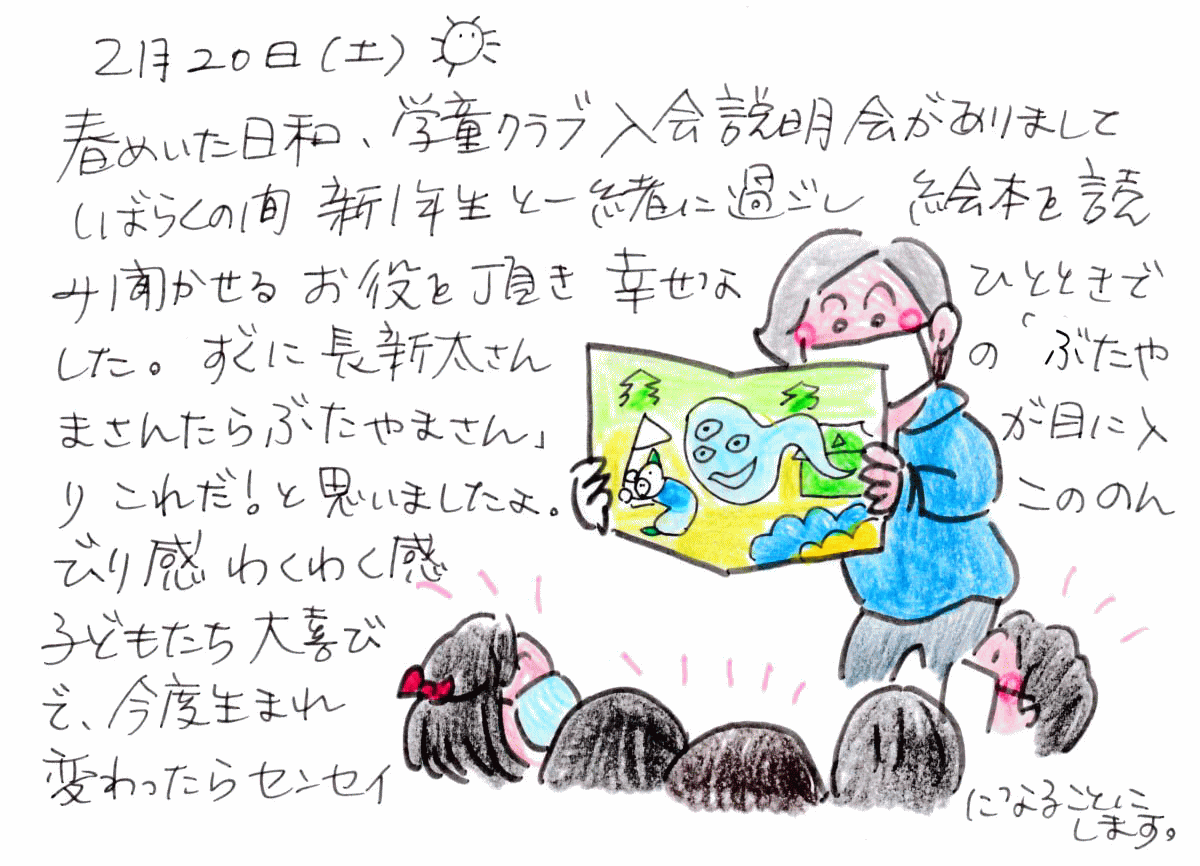 2月20日(土)
春めいた日和、学童クラブ入会説明会がありまして
しばらくの間 新1年生と一緒に過ごし 絵本を読
み聞かせる お役を頂き 幸せな ひとときで
した。すぐに 長新太さん の「ぶたや
まさんたらぶたやまさん」 が目に入
り これだ!と思いましたよ。 こののん
びり感 わくわく感
子どもたち 大喜び
で、今度生まれ
変わったらセンセイ
になることに
します。